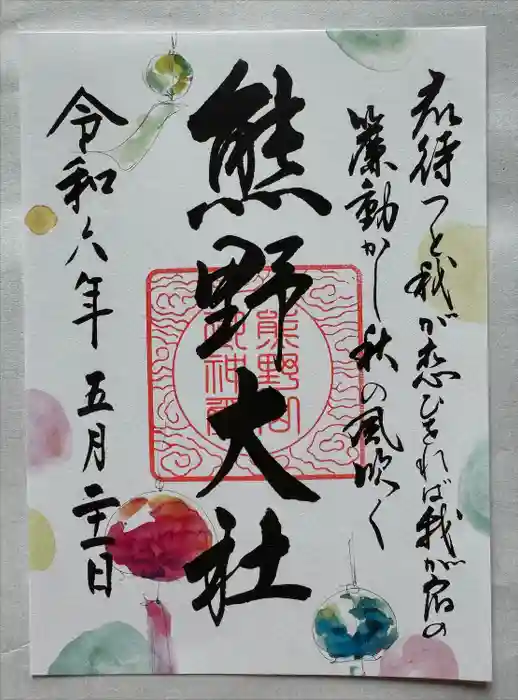 君待つと我が恋ひをれば我が宿の
簾動かし秋の風吹く
熊野大社
令和六年 五月二十一日